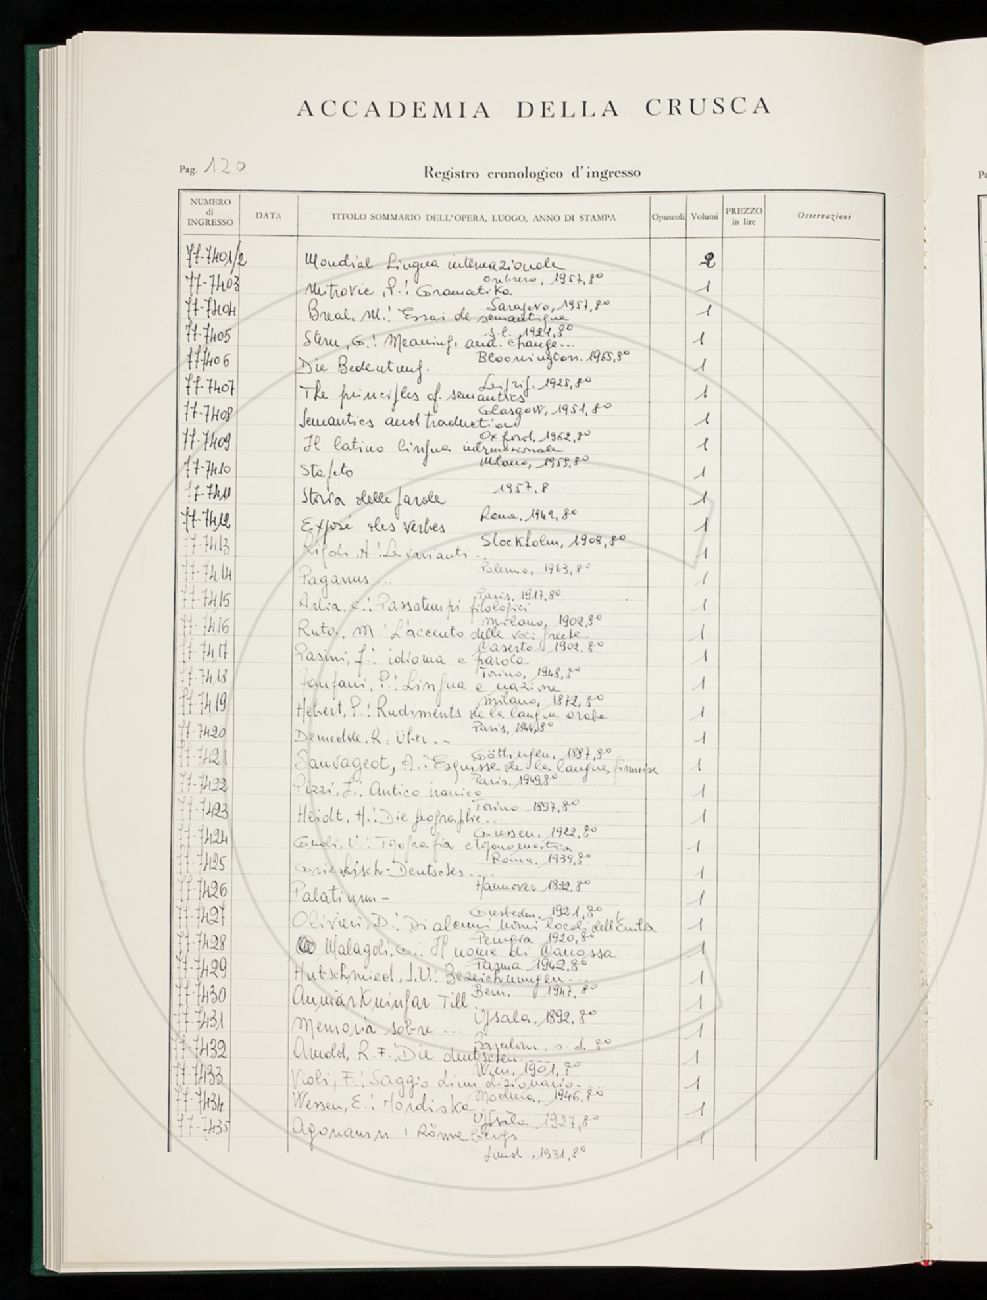 ACCADEMIA DELLA CRUSCA
Pag. 120
Registro cronologico d'ingresso
NUMERO di INGRESSO DATA TITOLO SOMMARIO DELL'OPERA, LUOGO, ANNO DI STAMPA Opuscoli Volumi PREZZO in lire Osservazioni
77-7401/2 Mondial Lingua internazionale 2
1957, 8°
77-7403 Mitrovic, P.: Gramatika 1
Sarajevo, 1957, 8°
77-7404 Breal, M.: Essai de semantique 1
s.l., 1921, 8°
77-7405 Stern, G.: Meaning, and change... 1
Bloomington. 1965, 8°
777406 Die Bedeutung. 1
Leipzig. 1925, 8°
77-7407 The principles of semantics 1
Glasgow, 1951, 8°
77-7408 Semantics and traduction 1
Oxford. 1962, 8°
77-7409 Il latino lingua internazionale 1
Milano, 1959, 8°
77-7410 Stafeto 1
1957, 8
77-7411 Storia delle parole 1
Roma, 1942, 8°
77-7412 Exposé des verbes 1
Stockholm, 1908, 8°
77-7413 Rifoli, A.: Le varianti... 1
Palermo, 1963, 8°
77-7414 Paganus... 1
Paris, 1917, 8°
77-7415 Arlia, C.: Passatempi filologici 1
Milano, 1902, 8°
77-7416 Ruto, M: L'accento delle voci greche 1
Caserta 1902, 8°
77-7417 Pasini, F.: idioma e parola 1
Torino, 1948, 8°
77-7418 Fanfani, P.: Lingua e nazione 1
Milano, 1872, 8°
77-7419 Hebert, P.: Rudiments de la langue arabe 1
Paris, 1844, 8°
77-7420 R. Über... 1
Göttingen, 1887, 8°
77-7421 Sauvageot, A.: Esquisse de la langue finnoise 1
Paris. 1949, 8°
77-7422 Pizzi, I. Antico iranico 1
Torino 1897, 8°
77-7423 Heidt, H.: Die geographie... 1
Giessen, 1922, 8°
77-7424 Guidi, I.: Topografia e toponomastica 1
Roma, 1939, 8°
77-7425 Griechisch-Deutsches.... 1
Hannover 1832, 8°
77-7426 Palatinum- 1
1921, 8°
77-7427 Olivieri, D.: Di alcuni nomi locali dell'Emilia 1
Perugia 1920, 8°
77-7428 Malagoli, G.. Il nome di Canossa 1
Parma 1942, 8°
77-7429 Hubschmied, J.U. Bezeichnungen... 1
Bern. 1947, 8°
77-7430 Anmärkningar Till... 1
Upsala, 1892, 8°
77-7431 Memoria sobre ... 1
Barcelona, s. d. 8°
77-7432 Arnold, R. F.: Die deutschen... 1
Wien, 1901, 8°
77-7433 Violi, F.: Saggio di un dizionario... 1
Modena, 1946, 8°
77-7434 Wessen, E.: Nordiska 1
Upsala 1927, 8°
77-7435 1
Lund, 1931, 8°